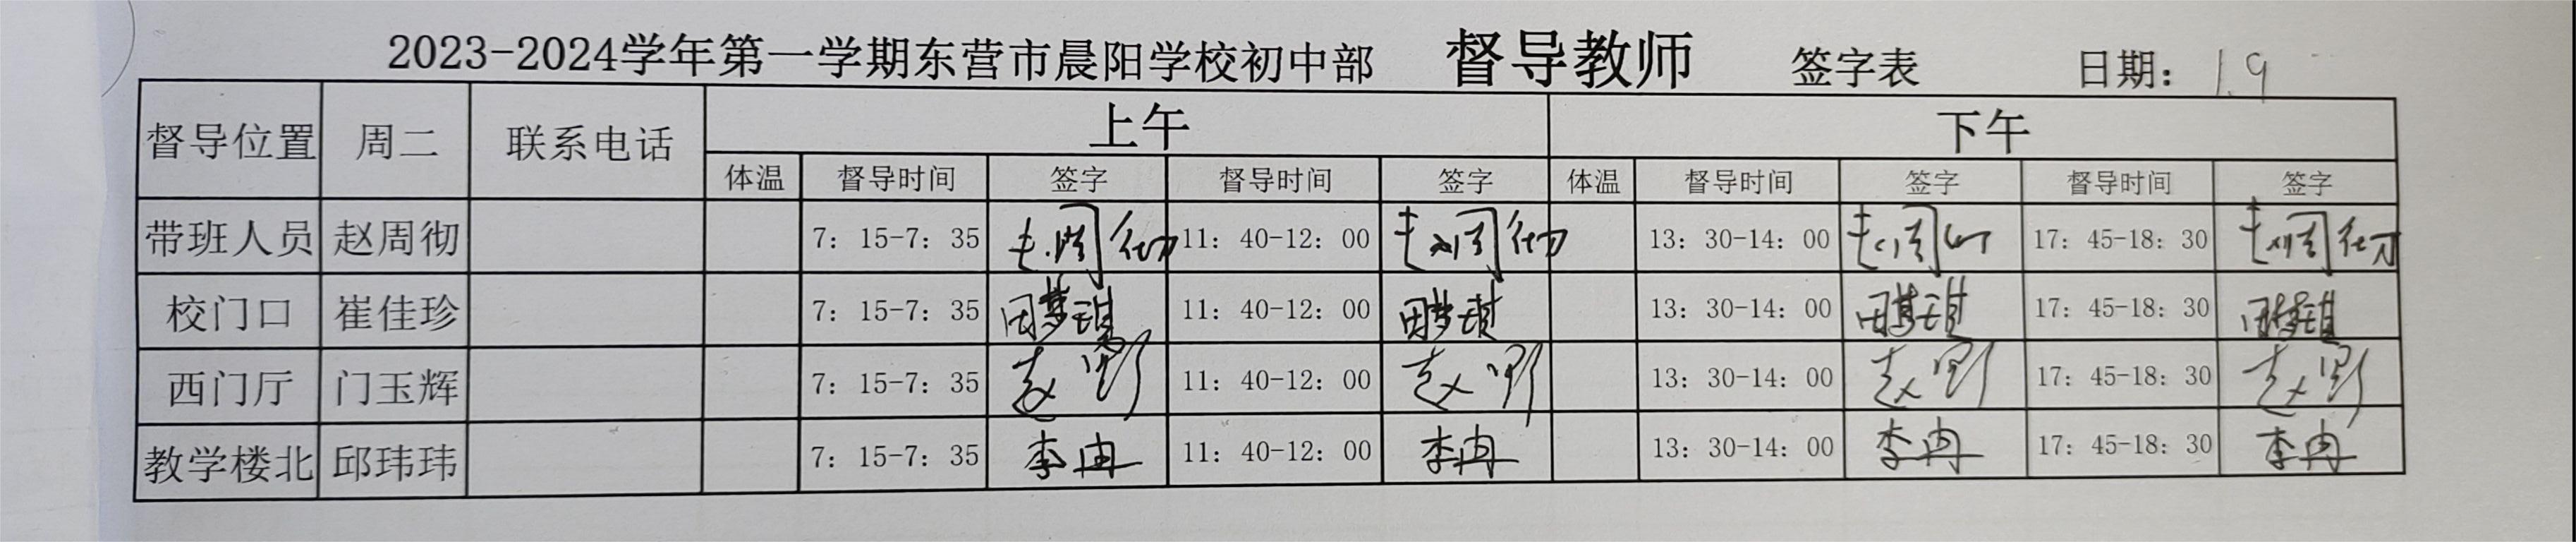 2023-2024学年第一学期东营市晨阳学校初中部 督导教师 签字表 日期：1.9
督导位置 周二 联系电话 上午 下午
体温 督导时间 签字 督导时间 签字 体温 督导时间 签字 督导时间 签字
带班人员 赵周彻 7：15-7：35 赵周彻 11：40-12：00 赵周彻 13：30-14：00 赵周彻 17：45-18：30 赵周彻
校门口 崔佳珍 7：15-7：35 田梦琪 11：40-12：00 田梦琪 13：30-14：00 田梦琪 17：45-18：30 田梦琪
西门厅 门玉辉 7：15-7：35 赵 11：40-12：00 赵 13：30-14：00 赵 17：45-18：30 赵
教学楼北 邱玮玮 7：15-7：35 李冉 11：40-12：00 李冉 13：30-14：00 李冉 17：45-18：30 李冉